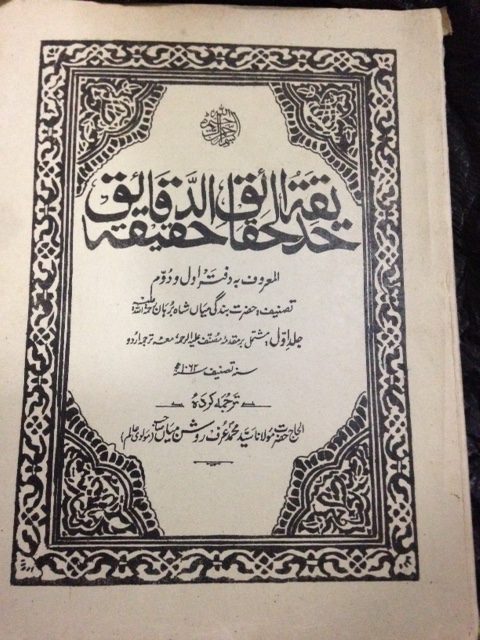 بسم اللہ الرحمن الرحیم
حدیقۃ الحقائق حقیقۃ الدقایق
المعروف بہ دفتر اول و دوّم
تصنیف: حضرت بندگی میاں شاہ برہان رحمۃ اللہ علیہ
جلد اوّل: مشتمل بر مقدمۂ مصنف علیہ الرحمۃ معہ ترجمہ اردو
سنہ تصنیف ۱۰۶۲ھ
ترجمہ کردہ
الحاج حضرت مولانا سید محمد عرف روشن میاں صاحب (مولوی عالم)